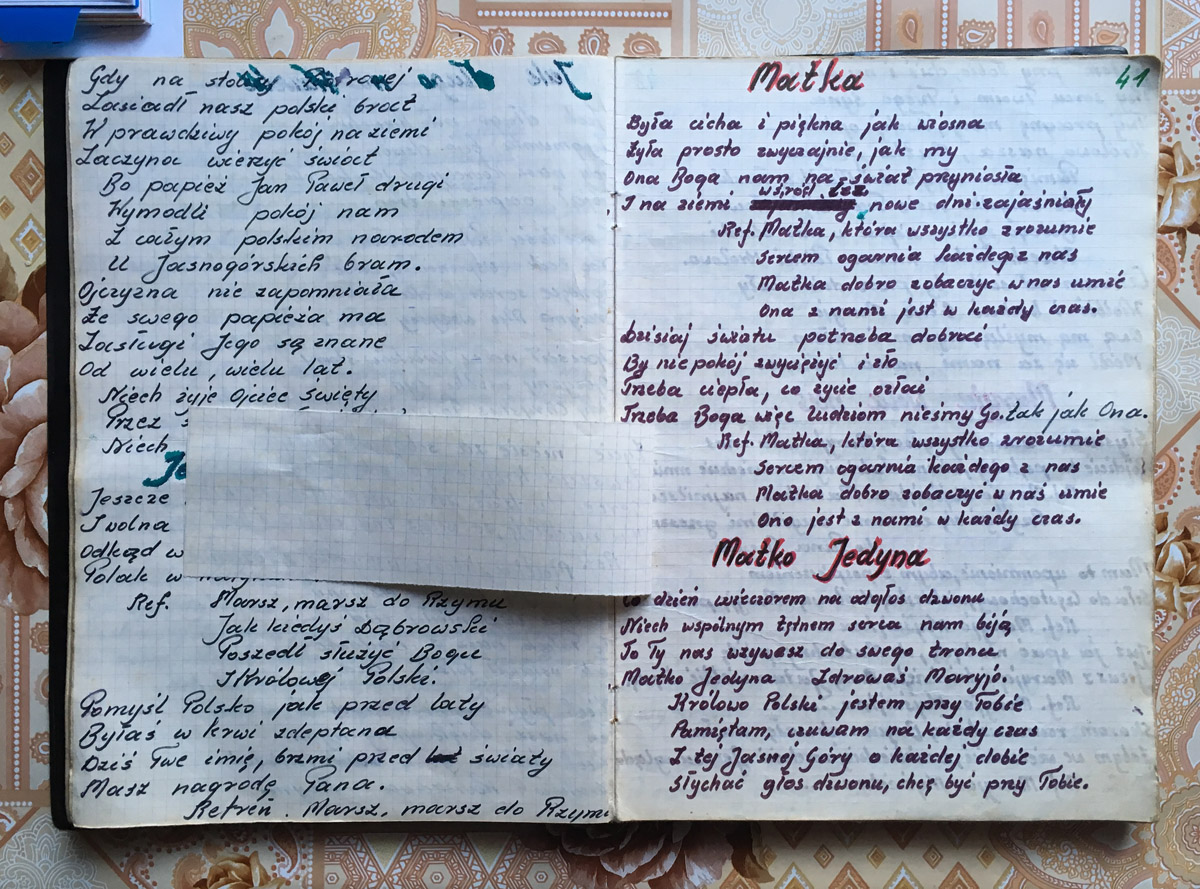 Gdy na stolicy Piotrowej
Zasiadł nasz polski brat
W prawdziwy pokój na ziemi
Zaczyna wierzyć świat
Bo papież Jan Paweł drugi
Wymodli pokój nam
Z całym polskim narodem
U Jasnogórskich bram.
Ojczyzna nie zapomniała
Że swego papieża ma
Zasługi Jego są znane
Od wielu, wielu lat.
Niech żyje Ojciec Święty
Przez
Niech
Je
Jeszcze
I wolna
Odkąd w
Polak w
Ref. Marsz, marsz do Rzymu
Jak kiedyś Dąbrowski
Poszedł służyć Bogu
I Królowej Polski.
Pomyśl Polsko jak przed laty
Byłaś w krwi zdeptana
Dziś Twe imię, brzmi przed światy
Masz nagrodę Pana.
Refreń. Marsz, marsz do Rzymu
41
Matka
Była cicha i piękna jak wiosna
Żyła prosto zwyczajnie, jak my
Ona Boga nam na świat przyniosła
I na ziemi wśród łez nowe dni zajaśniały
Ref. Matka, która wszystko zrozumie
Sercem ogarnia każdego z nas
Matka dobro zobaczyć w nas umie
Ona z nami jest w każdy czas.
Dzisiaj światu potrzeba dobroci
By niepokój zwyciężyć i zło
Trzeba ciepła, co życie ozłoci
Trzeba Boga więc ludziom nieśmy Go. tak jak Ona.
Ref. Matka, która wszystko zrozumie
Sercem ogarnia każdego z nas
Matka dobro zobaczyć w naś umie
Ona jest z nami w każdy czas.
Matko Jedyna
Co dzień wieczorem na odgłos dzwonu
Niech wspólnym tętnem serca nam biją
To Ty nas wzywasz do swego tronu
Matko Jedyna Zdrowaś Maryjo.
Królowo Polski jestem przy Tobie
Pamiętam, czuwam na każdy czas
Z tej Jasnej Góry o każdej dobie
Słychać głos dzwonu, chcę być przy Tobie.